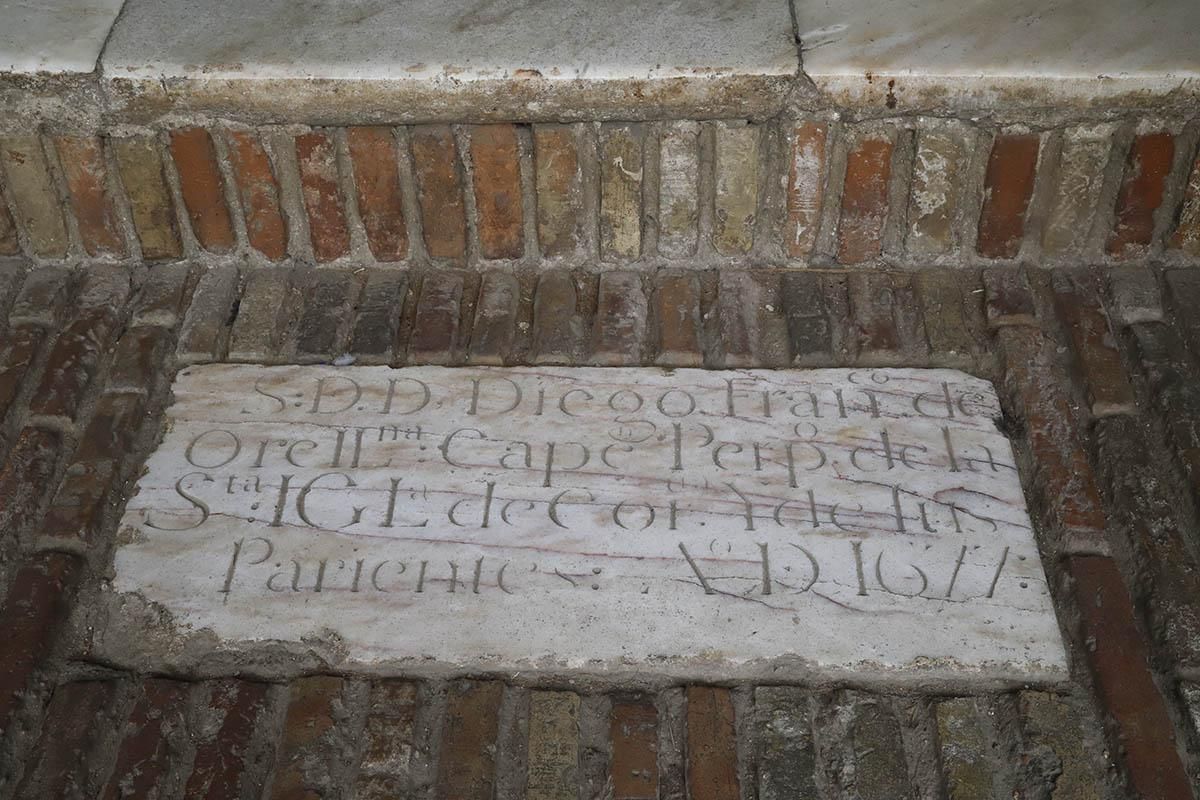 S: D. D. Diego Franᶜᵒ de
Orellⁿᵃ: Capeⁿ Perpᵒ. de la
Sᵗᵃ: IGLᵃ de Cor. Y de sus
Parientes: Aᵒ D 1677: